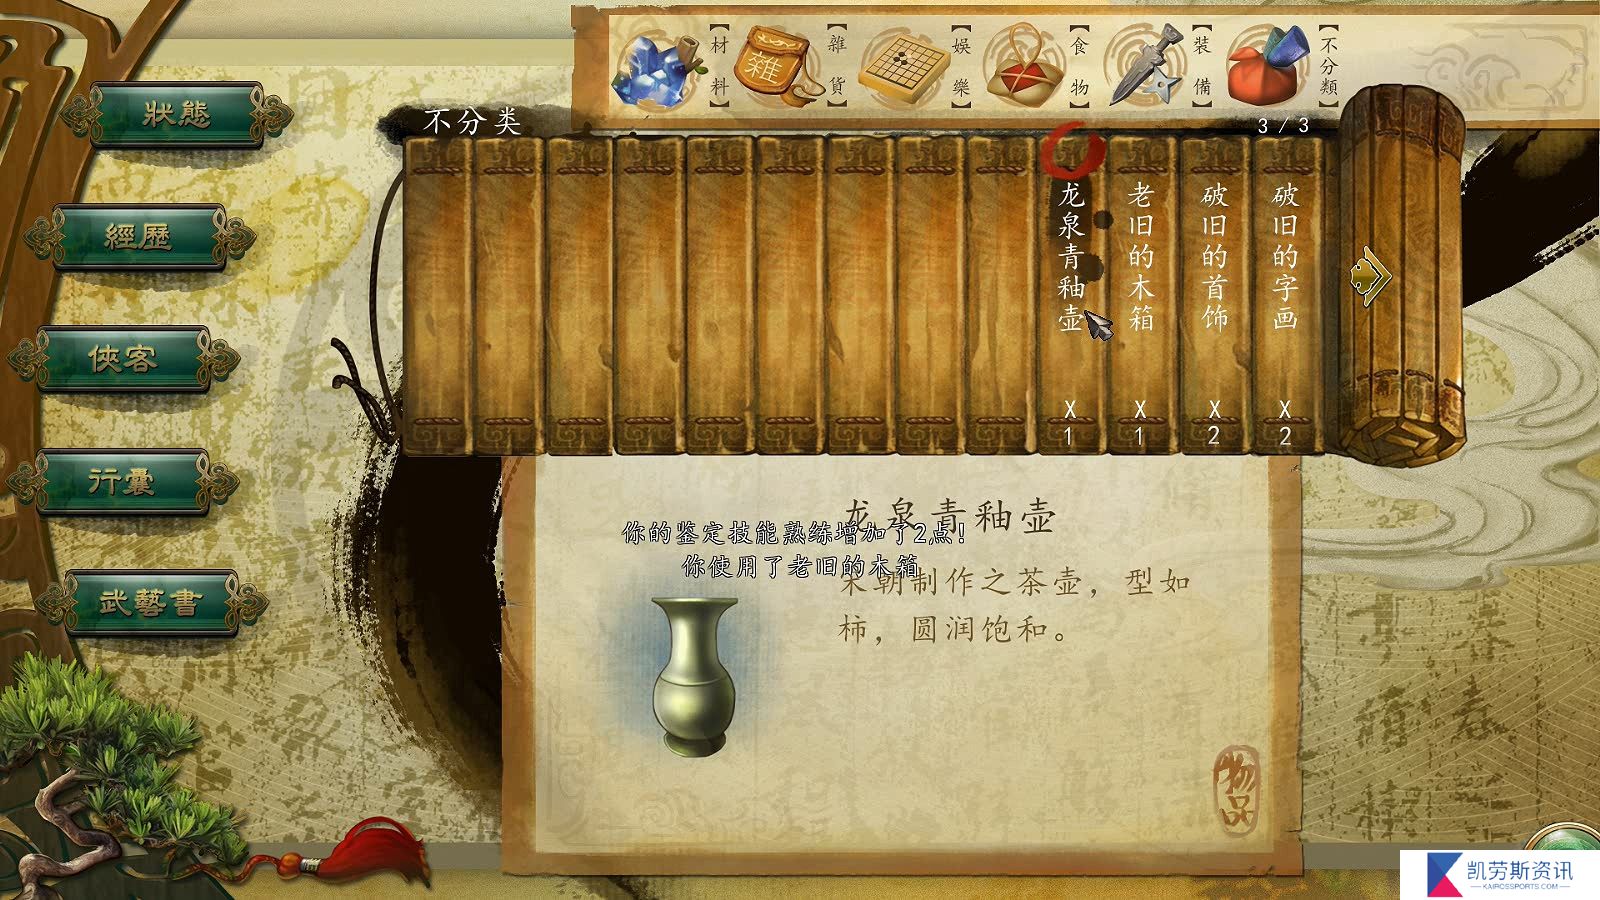 材料
雜貨
娛樂
食物
裝備
不分類
雜
狀態
經歷
俠客
行囊
武藝書
不分类
3/3
龙泉青釉壶
X
1
老旧的木箱
X
1
破旧的首饰
X
2
破旧的字画
X
2
龙泉青釉壶
你的鉴定技能熟练增加了2点!
你使用了老旧的木箱
宋朝制作之茶壶，型如
柿，圆润饱和。
物品
凯劳斯资讯
KAIROSSPORTS.COM